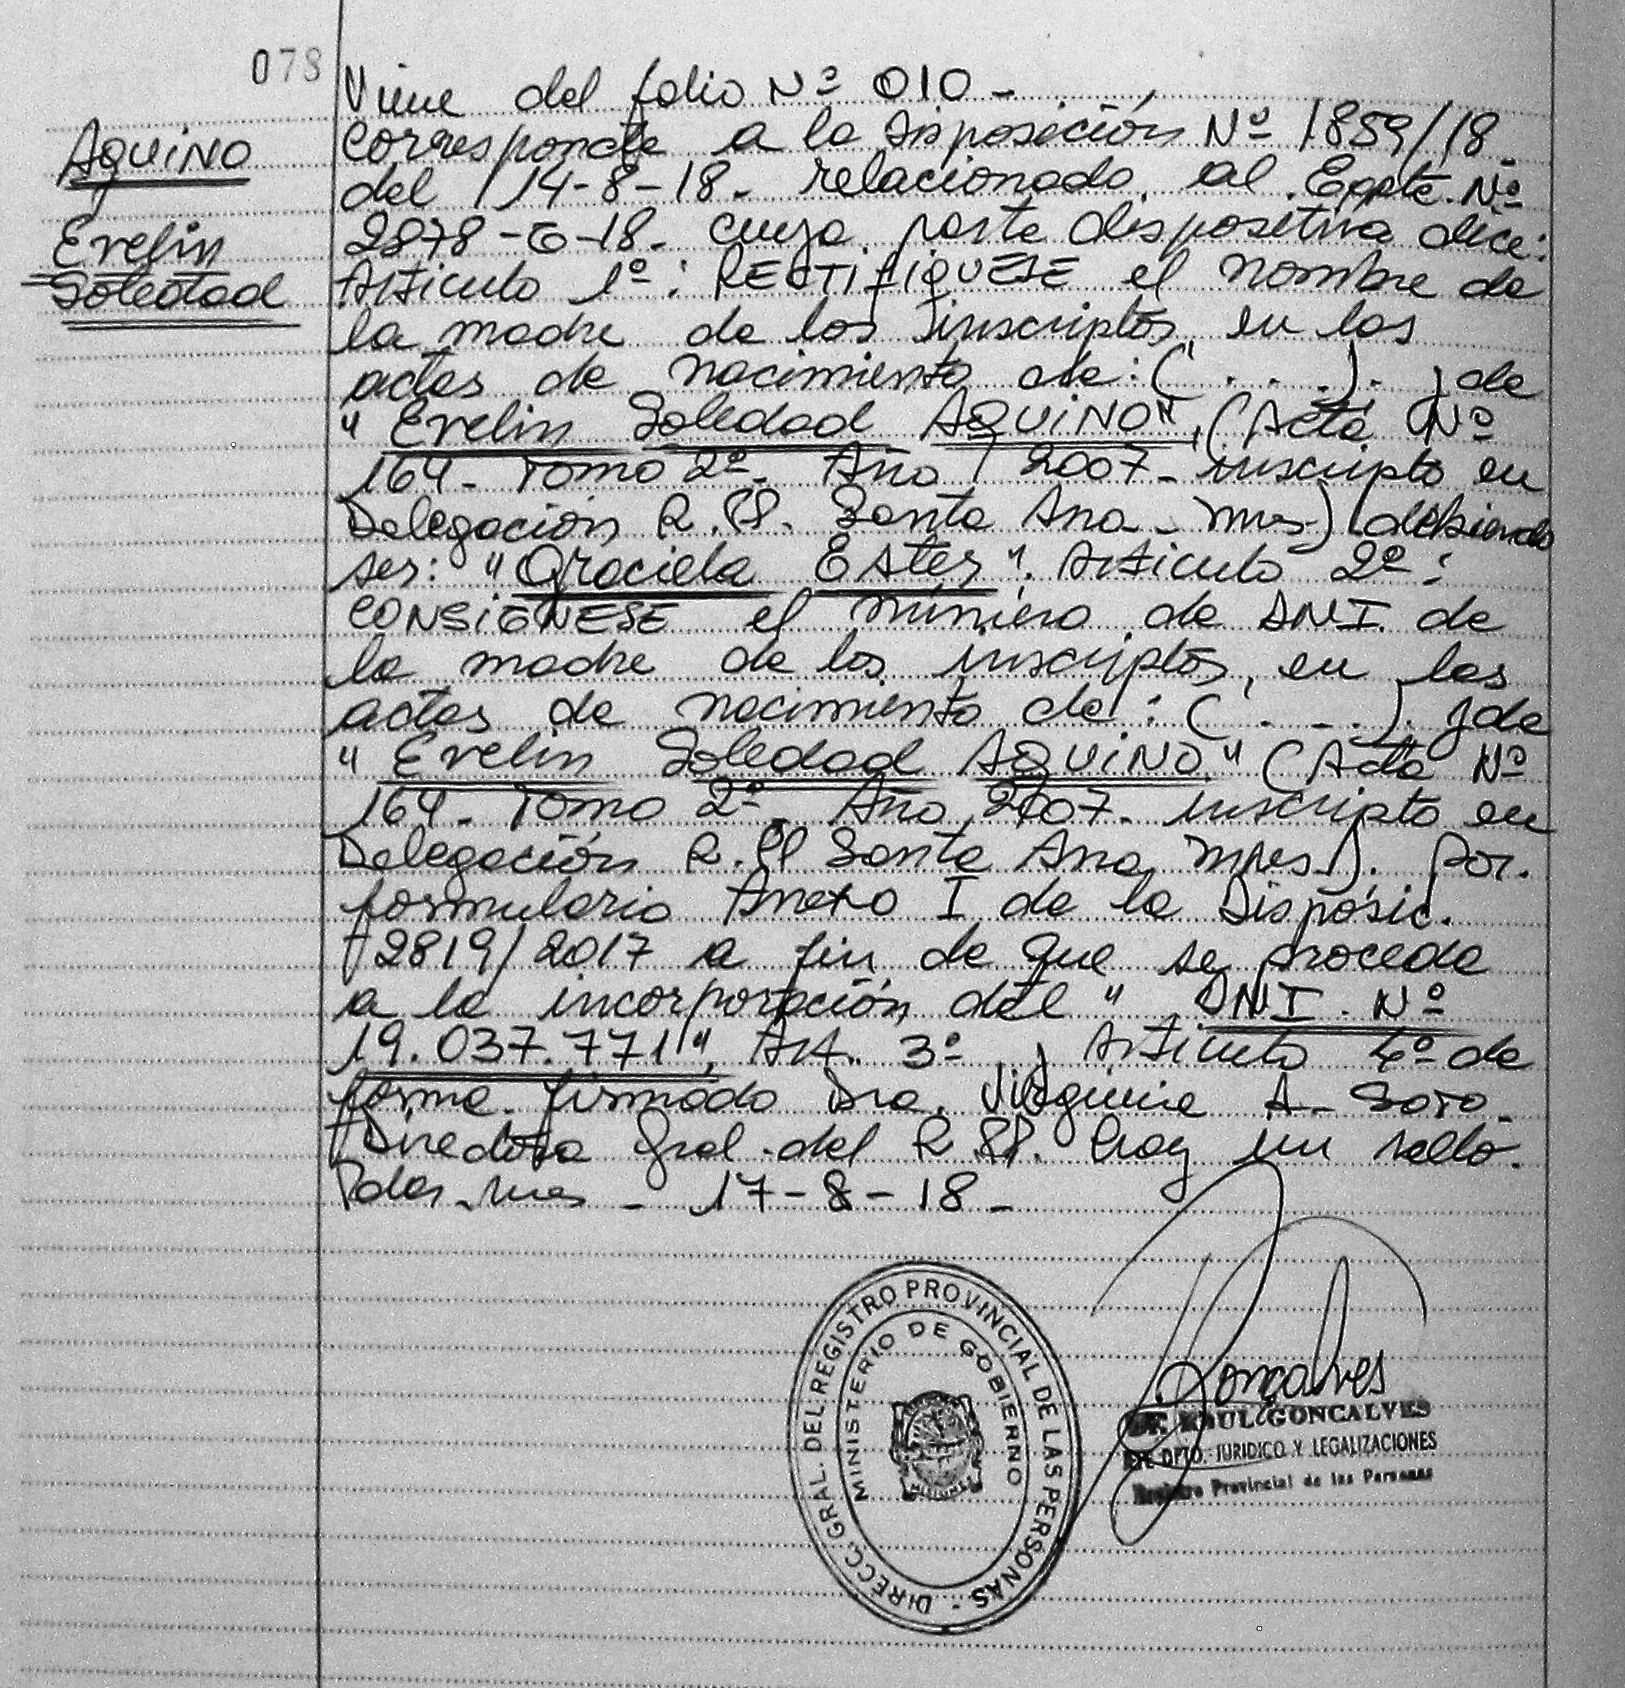 078
Viene del folio Nº 010 -
Aquino
Evelin
Soledad
Corresponde a la Disposición Nº 1859/18
del 14-8-18. relacionado al Expte. Nº
2878-G-18. cuya parte dispositiva dice:
Artículo 1º: RECTIFIQUESE el nombre de
la madre de los inscriptos, en las
actas de nacimiento de: (. . . .). y de
"Evelin Soledad AQUINO", (Acta Nº
164. Tomo 2º. Año 2007. inscripto en
Delegación R.PP. Santa Ana - Mnes) debiendo
ser: "Graciela Ester". Artículo 2º:
CONSIGNESE el número de DNI. de
la madre de los inscriptos, en las
actas de nacimiento de: (. - - .). y de
"Evelin Soledad AQUINO" (Acta Nº
164. Tomo 2º. Año 2007. inscripto en
Delegación R.PP Santa Ana Mnes.). Por.
formulario Anexo I de la Disposic.
2819/2017 a fin de que se proceda
a la incorporación del "DNI. Nº
19.037.771", Art. 3º y Artículo 4º de
forma. firmado Dra. Virginia A. Soto.
Directora Gral. del R.PP. hay un sello.
Pdas. Mnes - 17-8-18 -
DIRECC. GRAL. DEL REGISTRO PROVINCIAL DE LAS PERSONAS -
MINISTERIO DE GOBIERNO
MISIONES
Gonçalves
RAUL GONCALVES
DPTO. JURIDICO Y LEGALIZACIONES
Registro Provincial de las Personas